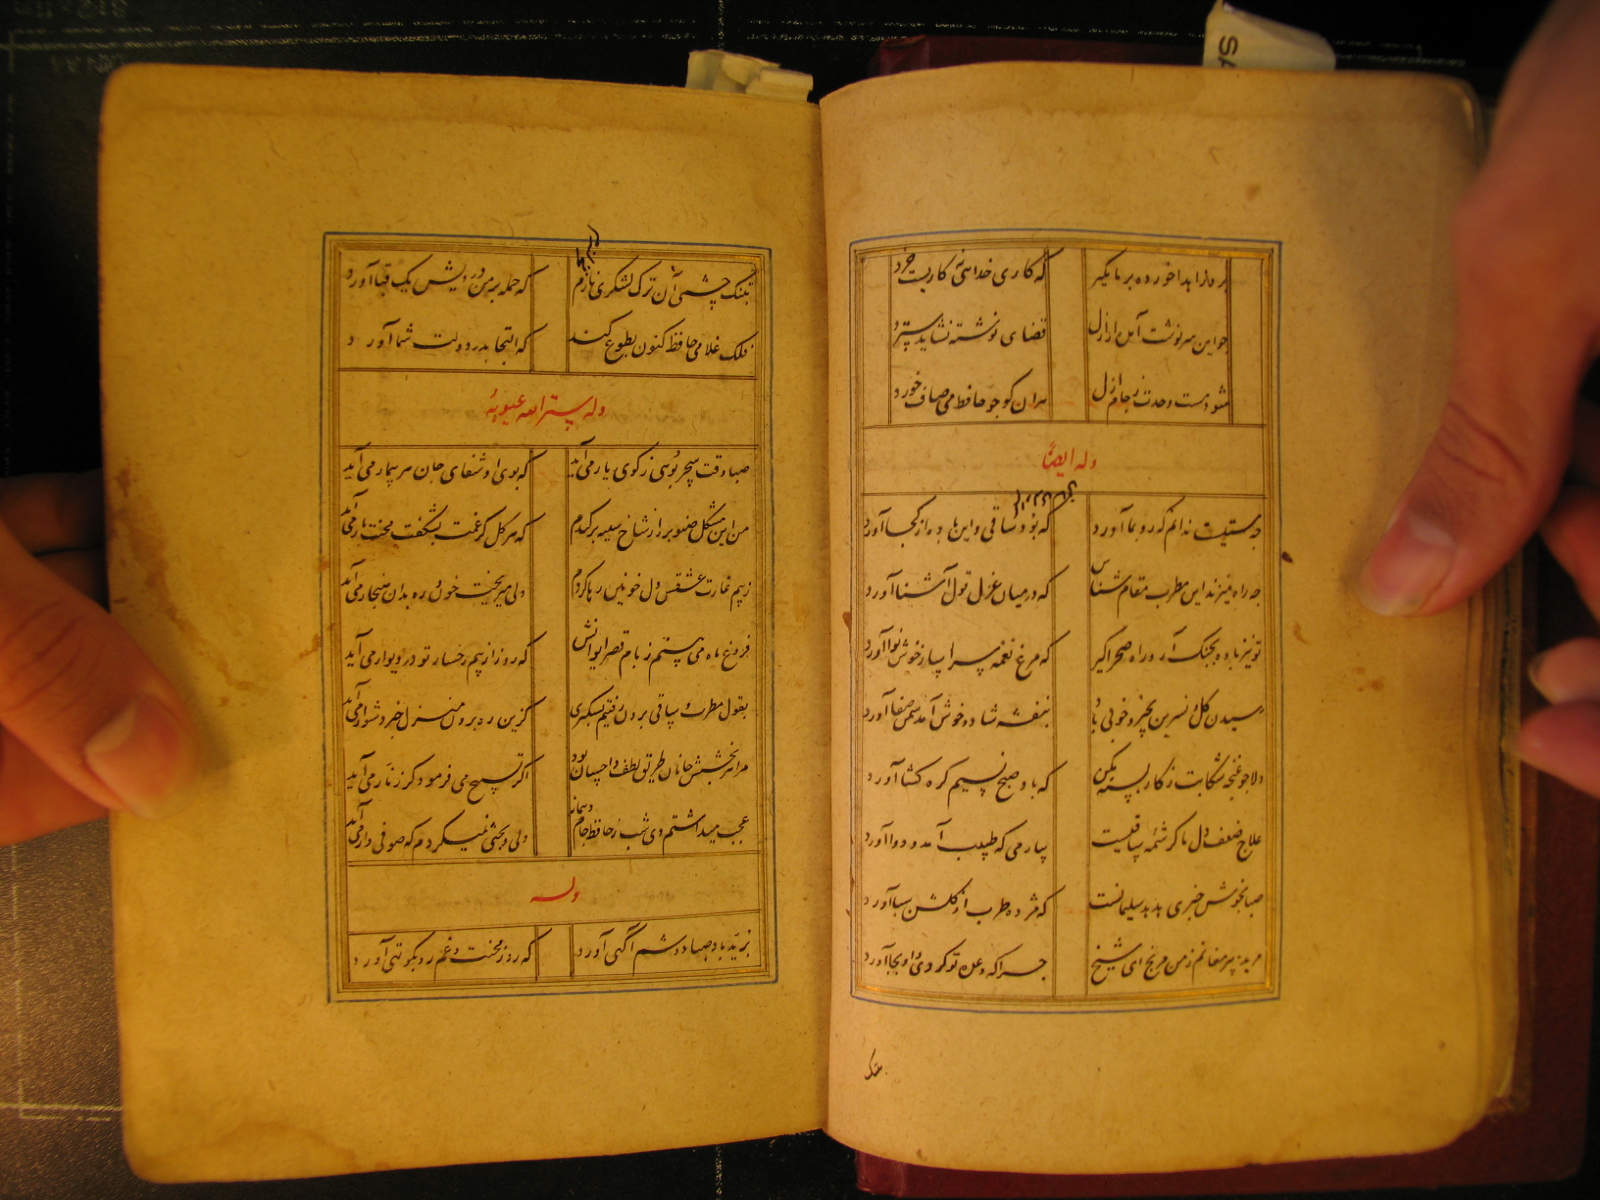 برو زاهدا خورده بر ما مگیر که کاری خدایی نه کاریست خرد
چو این سرنوشت آمد از ازل قضای نوشته نشاید سترد
شود مست وحدت ز جام ازل هر آن کو چو حافظ می صاف خورد
وله ایضاً
چه مستیست ندانم که رو بما آورد که بود ساقی و این باده از کجا آورد
چه راه میزند این مطرب مقام شناس که در میان غزل قول آشنا آورد
تو نیز باده بچنگ آر و راه صحرا گیر که مرغ نغمه سرا ساز خوش نوا آورد
رسیدن گل و نسرین بخیر و خوبی باد بنفشه شاد و خوش آمد سمن صفا آورد
دلا چو غنچه شکایت ز کار بسته مکن که باد صبح نسیم گره گشا آورد
علاج ضعف دل ما کرشمه ساقیست بیار می که طبیب آمد و دوا آورد
صبا بخوش خبری هدهد سلیمانست که مژده طرب از گلشن سبا آورد
مرید پیر مغانم ز من مرنج ای شیخ چرا که وعده تو کردی و او بجا آورد
بتنک
بتنک چشمی آن ترک لشکری نازم که حمله بر من درویش یک قبا آورد
فلک غلامی حافظ کنون بطوع کند که التجا بدر دولت شما آورد
وله ستر الله عیوبه
صبا وقت سحر بویی ز کوی یار می آید که بوی او شفای جان هر بیمار می آید
من این شکل صنوبر را ز شاخ سینه برکندم که هر گل کز غمت بشکفت محنت بار می آید
ز بیم غارت عشقش دل خونین رها کردم ولی میریخت خون و ره بدان هنجار می آید
فروغ ماه می بینم ز بام قصر ایوانش که روز از بیم رخسار تو در دیوار می آید
بقول مطرب و ساقی برون رفتیم کزین ره برون منزل خبر دشوار می آید
سراسر بخشش جانان طریق لطف و احسان بود اگر تسبیح می فرمود و گر زنار می آید
عجب میداشتم دی شب ز حافظ جام و پیمانه ولی بحثی نمیکردم که صوفی وار می آید
وله
برید باد صبا دوشم آگهی آورد که روز محنت و غم رو بکوتهی آورد